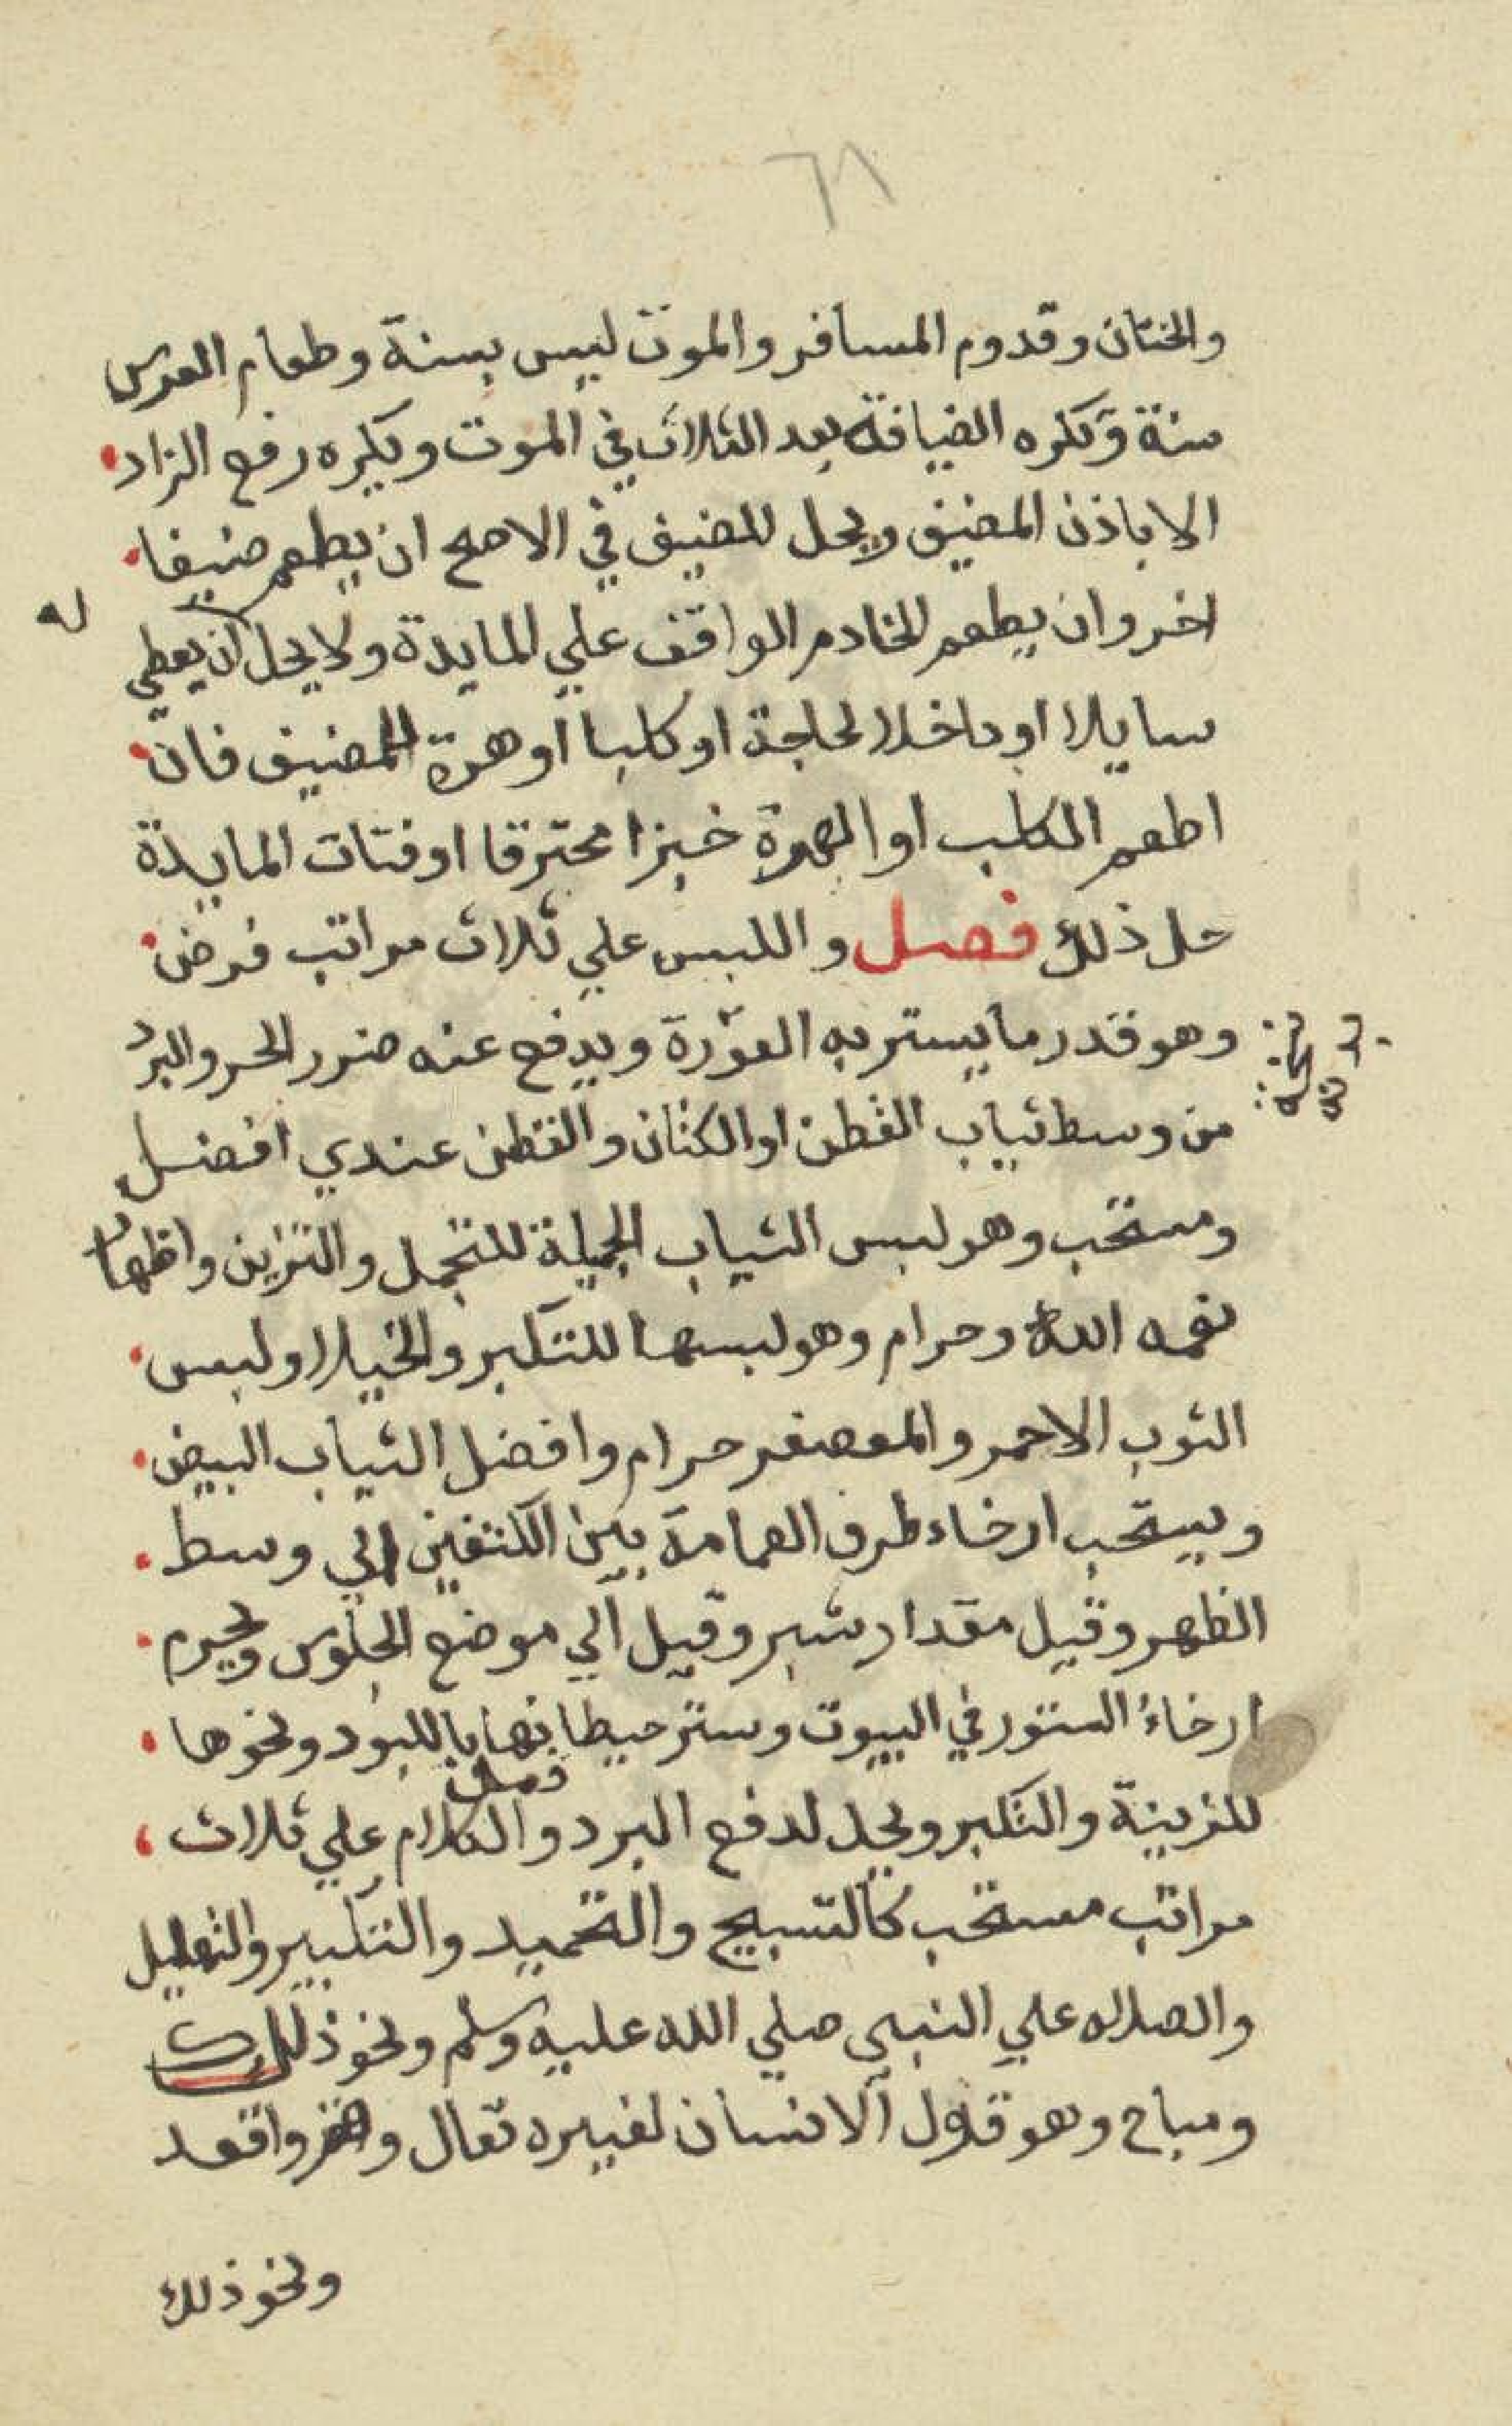 ٦٨
والختان وقدوم المسافر والموت ليس بسنة وطعام العرس
سنة وتكره الضيافة بعد الثلاث في الموت ويكره رفع الزاد
الا باذن المضيف ويحل للضيف في الاصح ان يطعم ضيفا
اخر وان يطعم الخادم الواقف علي المايدة ولا يحل ان يعطي
له
سايلا او داخلا لحاجة او كلبا او هرة للمضيف فان
اطعم الكلب او الهرة خبزا محترقا او فتات المايدة
حل ذلك فصل واللبس علي ثلاث مراتب فرض
وهو قدر ما يستر به العورة ويدفع عنه ضرر الحر والبرد
من وسط ثياب القطن او الكتان والقطن عندي افضل
ومستحب وهو لبس الثياب الجميلة للتجمل والتزين واظهار
نعمه الله وحرام وهو لبسها للتكبر والخيلا ولبس
الثوب الاحمر والمعصفر حرام وافضل الثياب البيض
ويستحب ارخاء طرف العمامة بين الكتفين الي وسط
الظهر وقيل مقدار شبر وقيل الي موضع الجلوس ويحرم
ارخاء الستور في البيوت وستر حيطانها باللبود ونحوها
فصل
للزينة والتكبر ويحل لدفع البرد والكلام علي ثلاث
مراتب مستحب كالتسبيح والتحميد والتكبير والتهليل
والصلاه علي النبي صلي الله عليه وسلم ونحو ذلك
ومباح وهو قول الانسان لغيره تعال وقم واقعد
ونحو ذلك